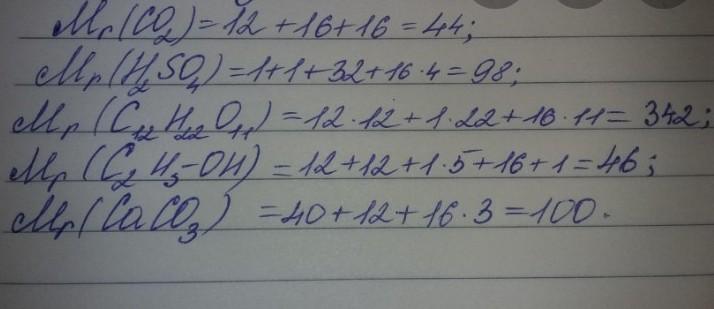 Mr(CO₂)=12+16+16=44;
Mr(H₂SO₄)=1+1+32+16·4=98;
Mr(C₁₂H₂₂O₁₁)=12·12+1·22+16·11=342;
Mr(C₂H₅-OH)=12+12+1·5+16+1=46;
Mr(CaCO₃)=40+12+16·3=100.